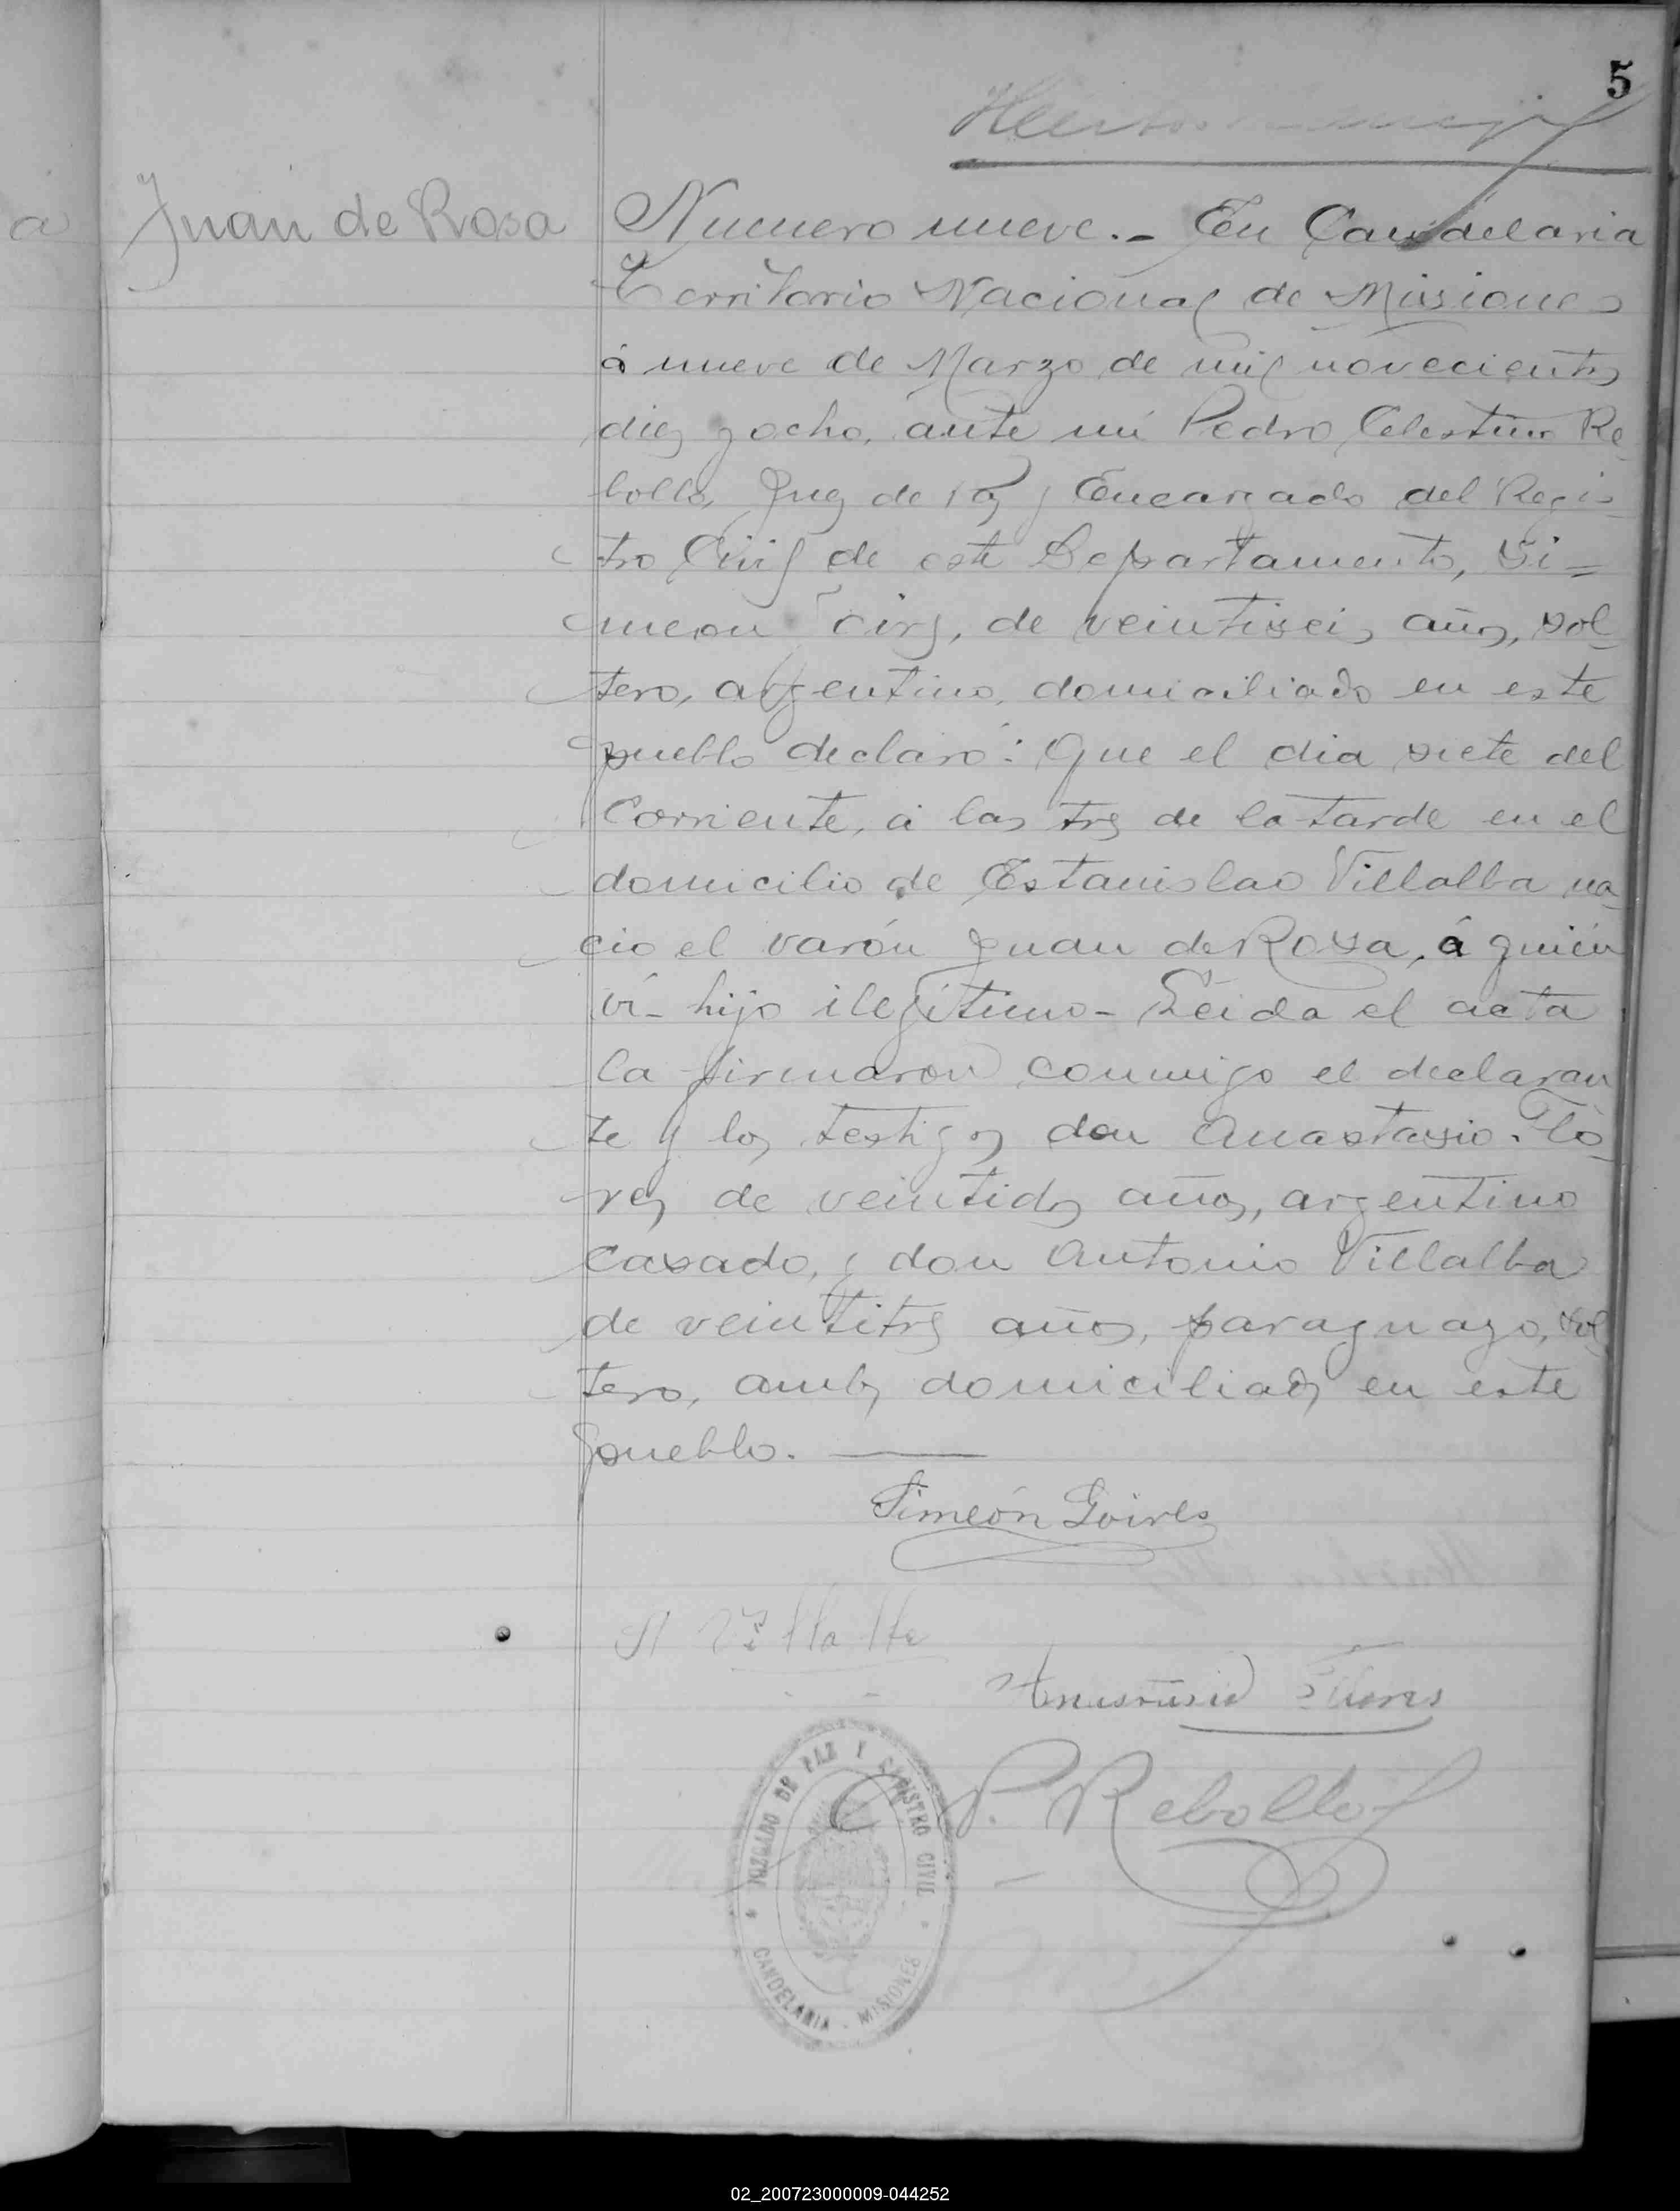 5
a
Juan de Rosa
Numero nueve.- En Candelaria
Territorio Nacional de Misiones
á nueve de Marzo de mil novecientos
diez y ocho, ante mi Pedro Celestino Re-
bollo, Juez de Paz y Encargado del Regis-
tro Civil de este Departamento, Si=
meon de veintiseis años, sol-
tero, argentino, domiciliado en este
pueblo declaró: Que el dia siete del
Corriente, á las tres de la tarde en el
domicilio de Estanislao Villalba na-
cio el varón Juan de Rosa, á quién
ví- hijo ilegítimo- Leida el acta
la firmaron conmigo el declaran
te y los testigos don Anastasio Flo-
res de veintidos años, argentino
casado, y don Antonio Villalba
de veintitres años, paraguayo, sol
tero, ambos domiciliados en este
pueblo.
Simeón Goires
A Villalba
Anastasio Flores
P. Rebollo
JUZGADO DE PAZ Y REGISTRO CIVIL
CANDELARIA - MISIONES
02_200723000009-044252